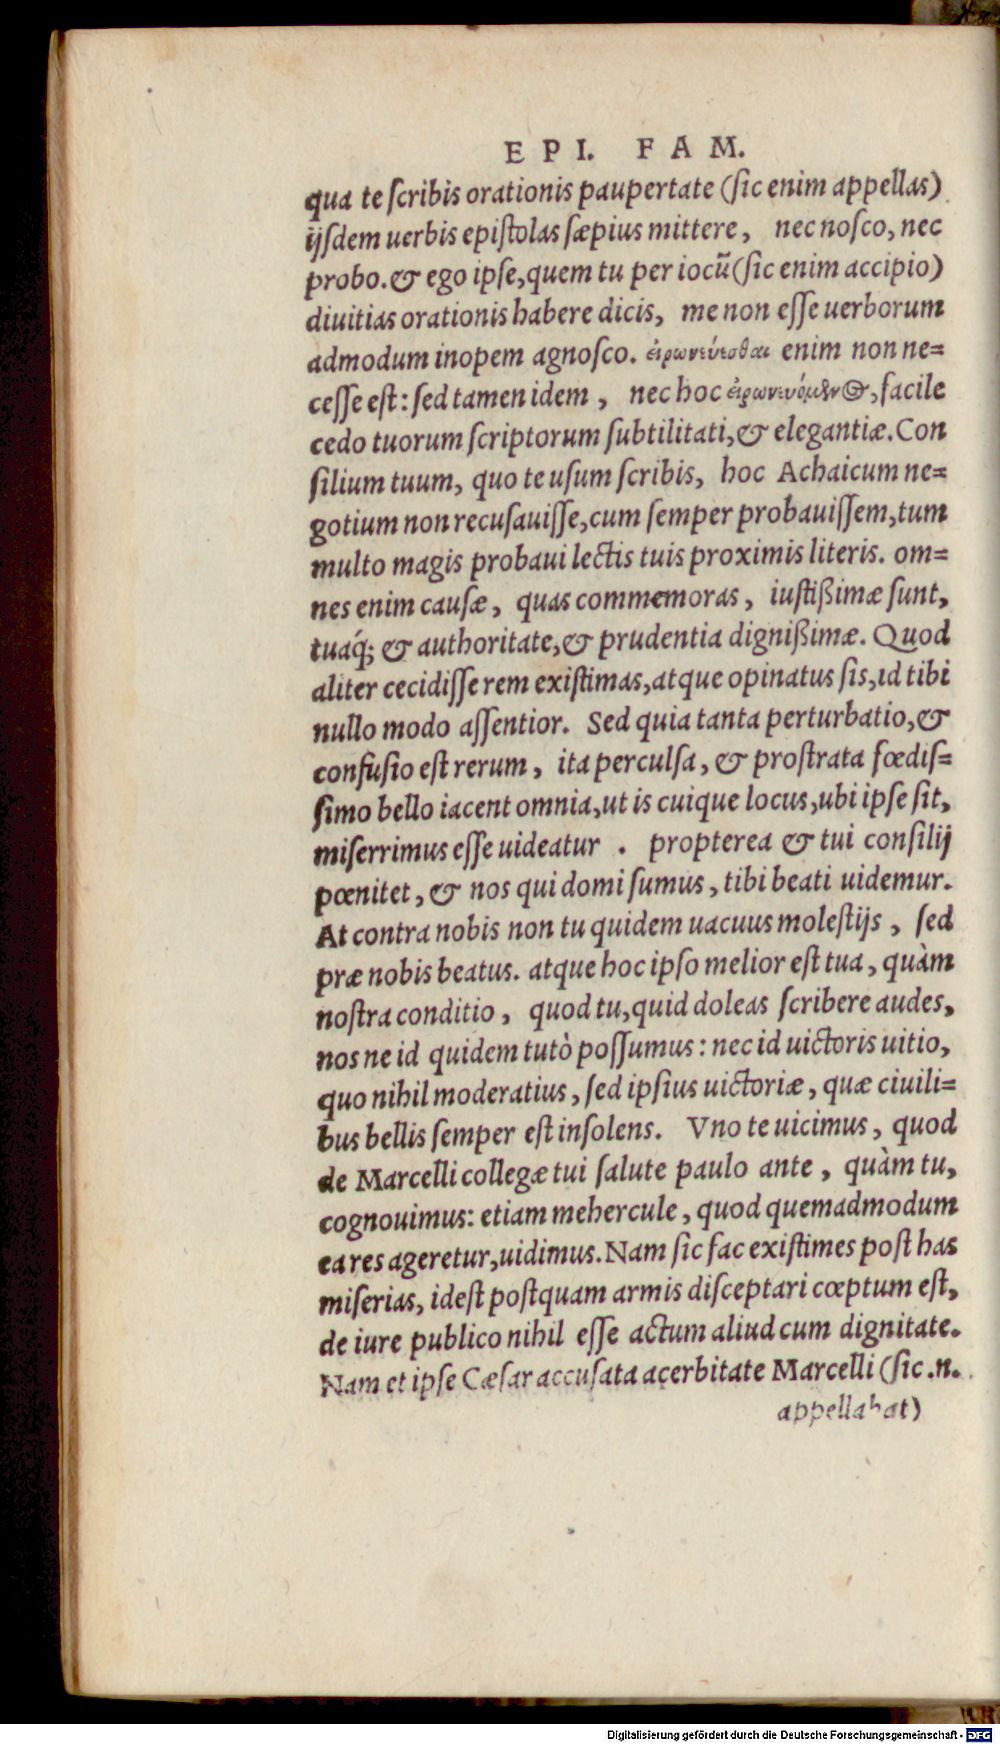 EPI. FAM.
qua te ſcribis orationis paupertate (ſic enim appellas)
ijſdem uerbis epiſtolas ſæpius mittere, nec noſco, nec
probo. & ego ipſe, quem tu per iocũ (ſic enim accipio)
diuitias orationis habere dicis, me non eſſe uerborum
admodum inopem agnoſco. εἰρωνεύεσθαι enim non ne=
ceſſe eſt: ſed tamen idem, nec hoc εἰρωνευόμενος, facile
cedo tuorum ſcriptorum ſubtilitati, & elegantiæ. Con
ſilium tuum, quo te uſum ſcribis, hoc Achaicum ne=
gotium non recuſauiſſe, cum ſemper probauiſſem, tum
multo magis probaui lectis tuis proximis literis. om=
nes enim cauſæ, quas commemoras, iuſtißimæ ſunt,
tuaq́; & authoritate, & prudentia dignißimæ. Quod
aliter cecidiſſe rem exiſtimas, atque opinatus ſis, id tibi
nullo modo aſſentior. Sed quia tanta perturbatio, &
confuſio eſt rerum, ita perculſa, & proſtrata fœdiſ=
ſimo bello iacent omnia, ut is cuique locus, ubi ipſe ſit,
miſerrimus eſſe uideatur. propterea & tui conſilij
pœnitet, & nos qui domi ſumus, tibi beati uidemur.
At contra nobis non tu quidem uacuus moleſtijs, ſed
præ nobis beatus. atque hoc ipſo melior eſt tua, quàm
noſtra conditio, quod tu, quid doleas ſcribere audes,
nos ne id quidem tutò poſſumus: nec id uictoris uitio,
quo nihil moderatius, ſed ipſius uictoriæ, quæ ciuili=
bus bellis ſemper eſt inſolens. Vno te uicimus, quod
de Marcelli collegæ tui ſalute paulo ante, quàm tu,
cognouimus: etiam mehercule, quod quemadmodum
ea res ageretur, uidimus. Nam ſic fac exiſtimes poſt has
miſerias, ideſt poſtquam armis diſceptari cœptum eſt,
de iure publico nihil eſſe actum aliud cum dignitate.
Nam et ipſe Cæſar accuſata acerbitate Marcelli (ſic .n.
appellabat)
Digitalisierung gefördert durch die Deutsche Forschungsgemeinschaft - DFG